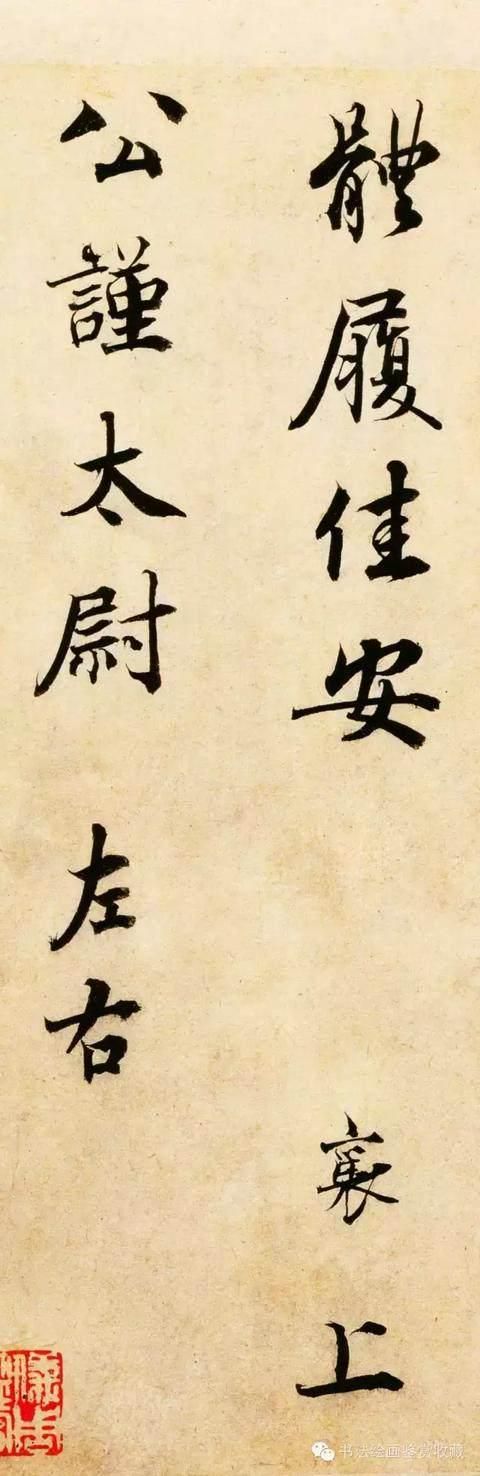 體履佳安 襄上
公謹太尉 左右
书法绘画鉴赏收藏